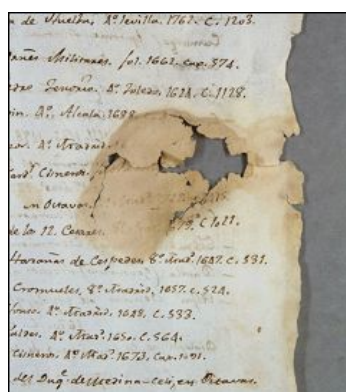 a de Huelva, 4º Sevilla. 1762. C. 1203.
añes Militares. fol. 1662. Cap. 374.
edro Tenorio. 4º Toledo. 1624. C. 1128.
4º. Alcalá. 1688
4º Madrid.
Card.¹ Cisneros.
en Octavas.
de los 12. Cesares. C. 1021.
Hazañas de Cespedes. 8º. Mad.ᵈ 1647. C. 531.
Cromueles, 8º. Madrid. 1657. C. 524.
4º. Madrid. 1648. C. 533.
Valdes. 4º Mad.ᵈ 1650. C. 564.
Cisneros. 4º Mad.ᵈ 1673. Cap. 1091.
del Duq.ᵉ de Medina-Celi, en Octavas.